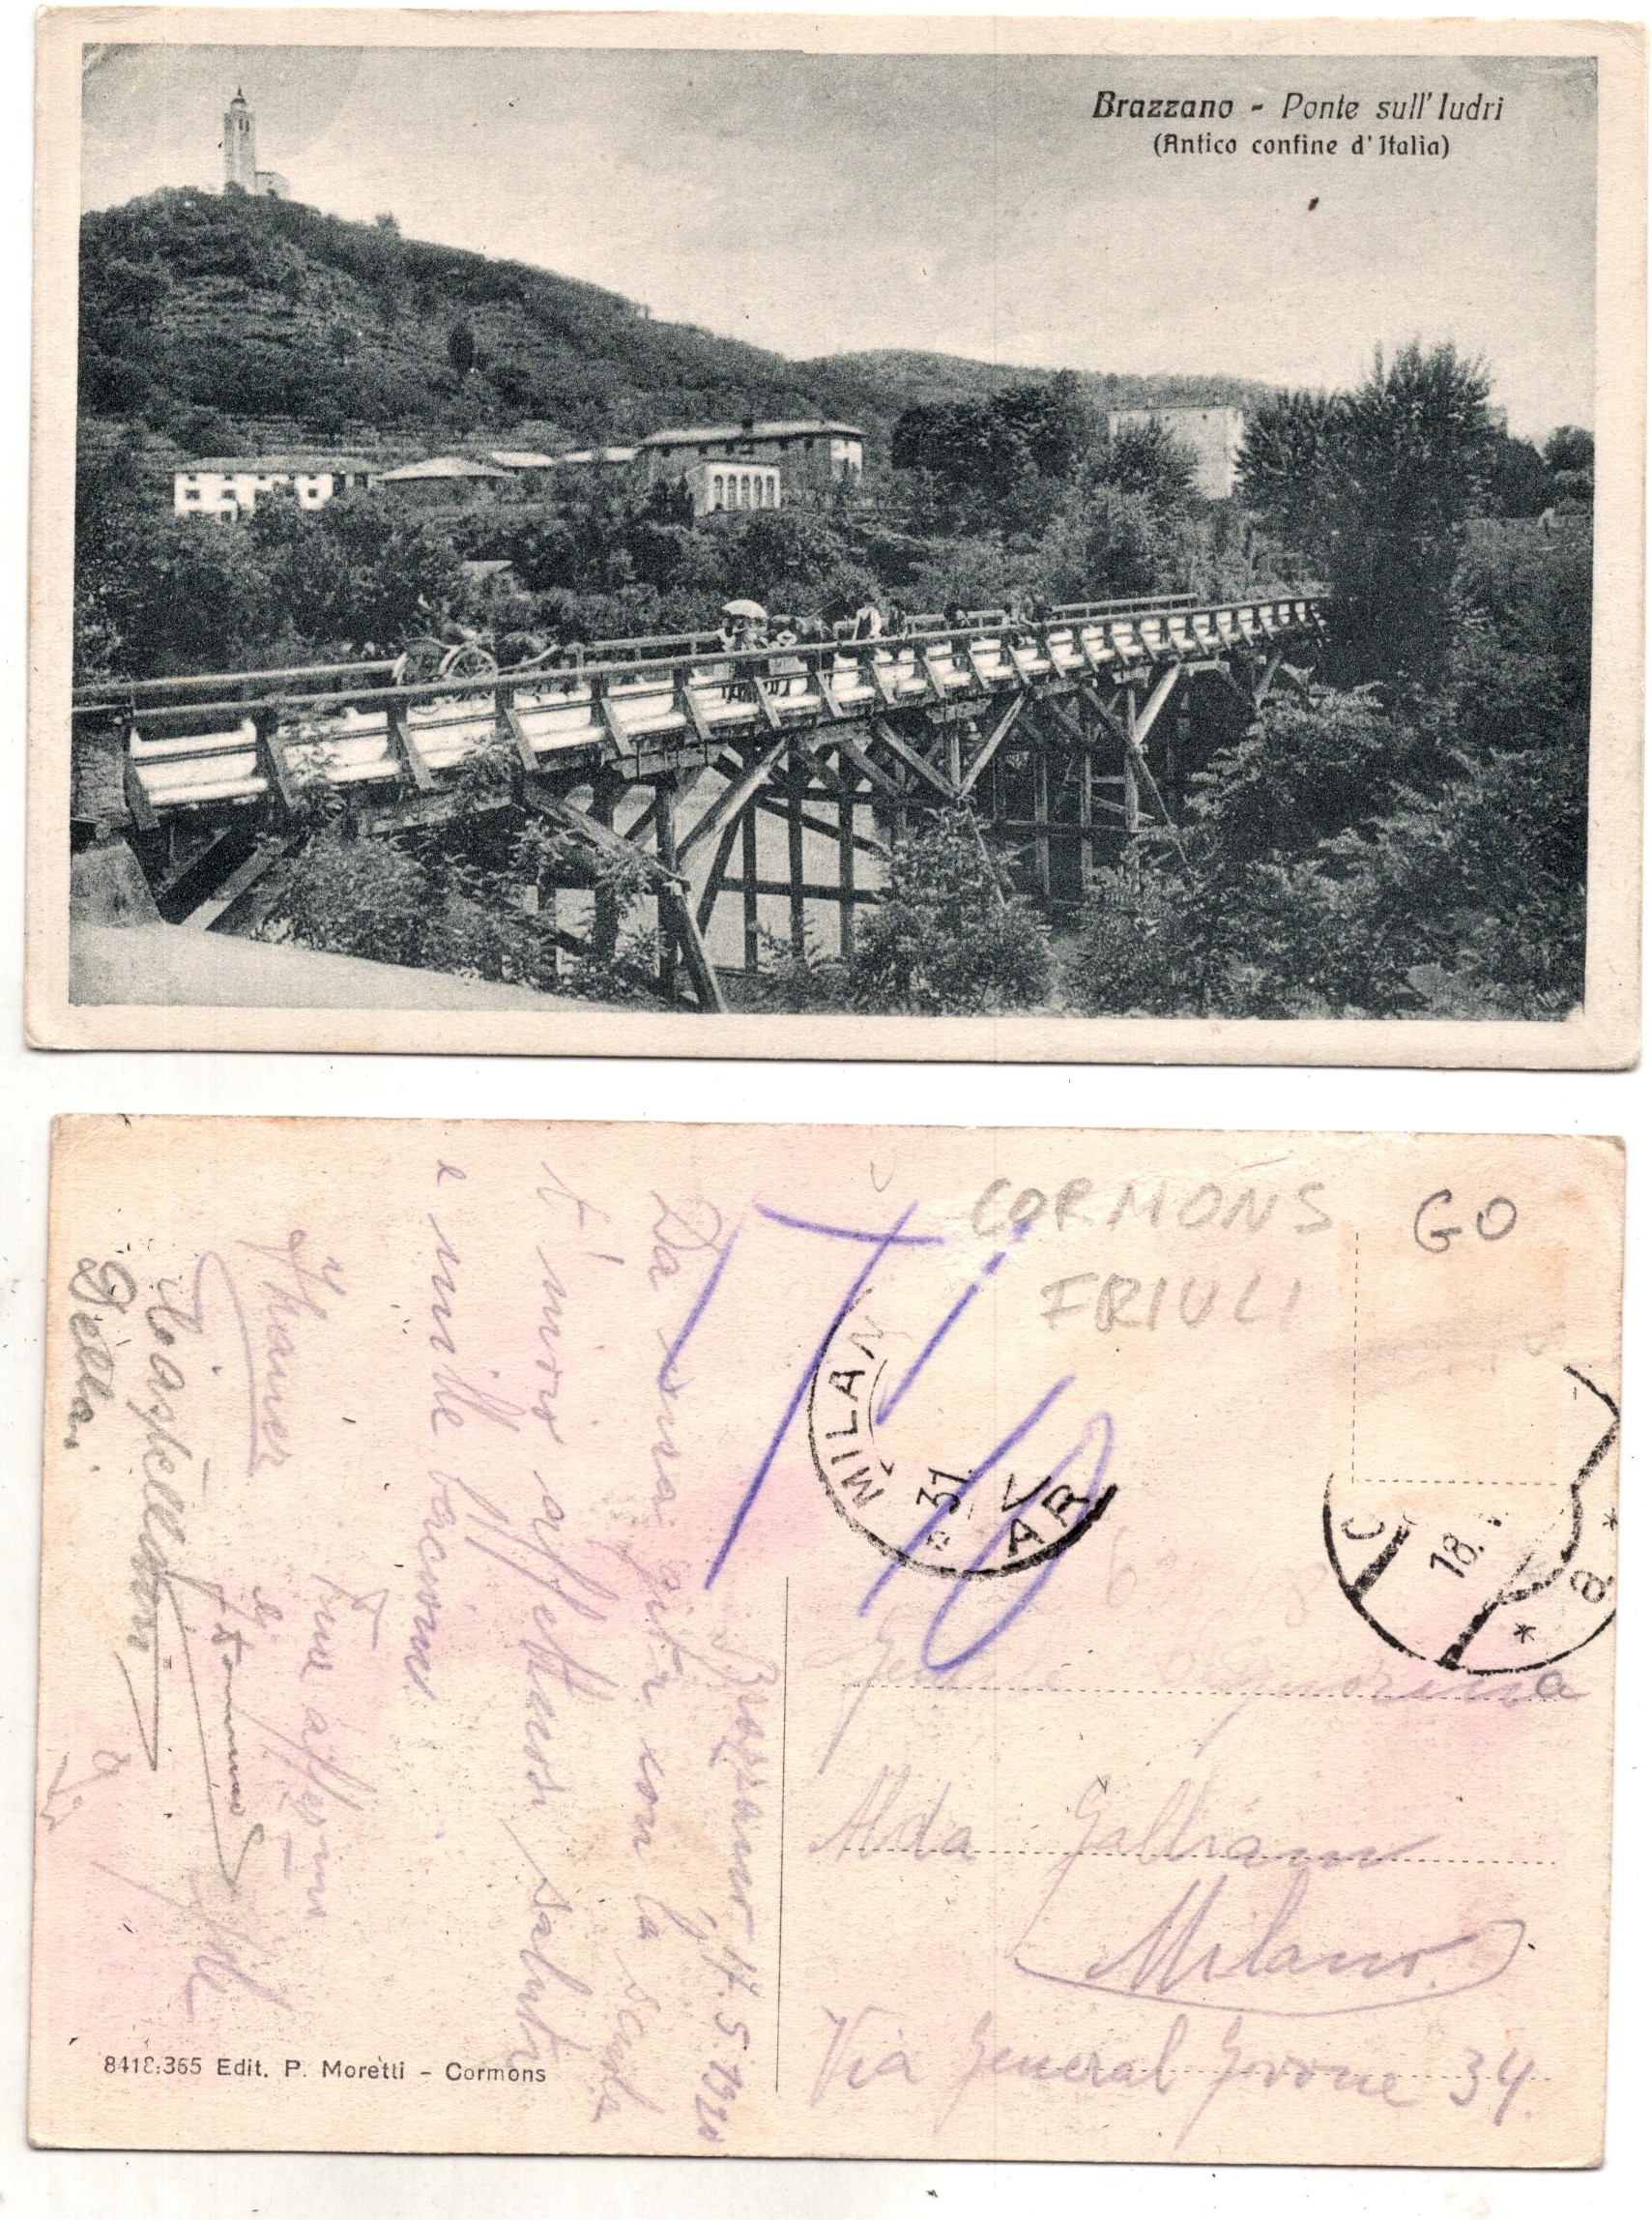 Brazzano - Ponte sull'Iudri
(Antico confine d'Italia)
CORMONS GO
FRIULI
T
10
MILAN
31. V
AR
C
18.
Brazzano, 17.5.1920
Da una gita con la scuola
t'invio affettuosi saluti
e mille bacioni.
tua aff
Gentile Signorina
Alda Galliani
Milano.
Via General Govone 34.
8418:365 Edit. P. Moretti - Cormons